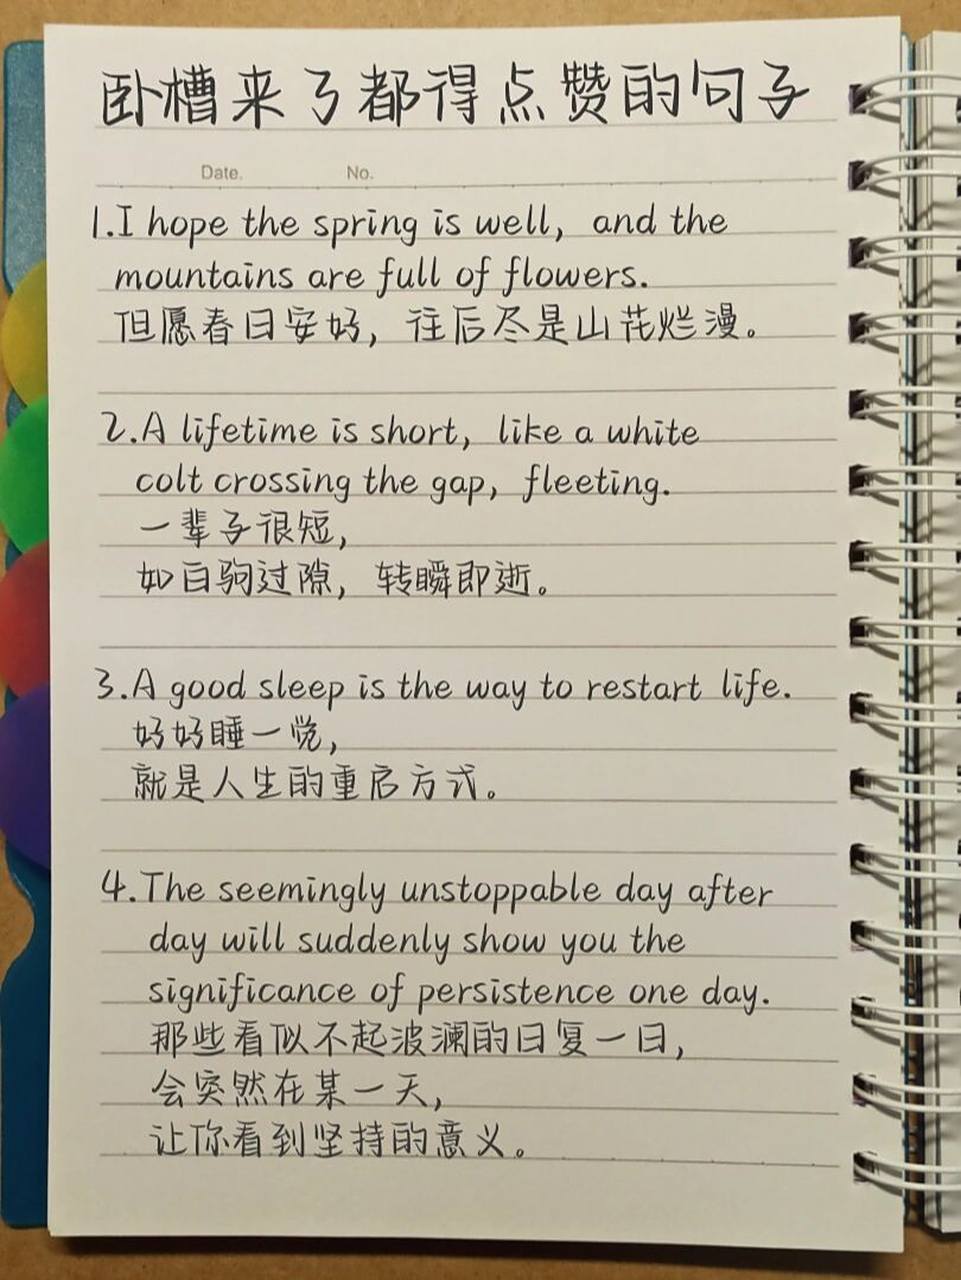 卧槽来了都得点赞的句子
Date. No.
1.I hope the spring is well, and the
mountains are full of flowers.
但愿春日安好，往后尽是山花烂漫。
2.A lifetime is short, like a white
colt crossing the gap, fleeting.
一辈子很短，
如白驹过隙，转瞬即逝。
3.A good sleep is the way to restart life.
好好睡一觉，
就是人生的重启方式。
4.The seemingly unstoppable day after
day will suddenly show you the
significance of persistence one day.
那些看似不起波澜的日复一日，
会突然在某一天，
让你看到坚持的意义。